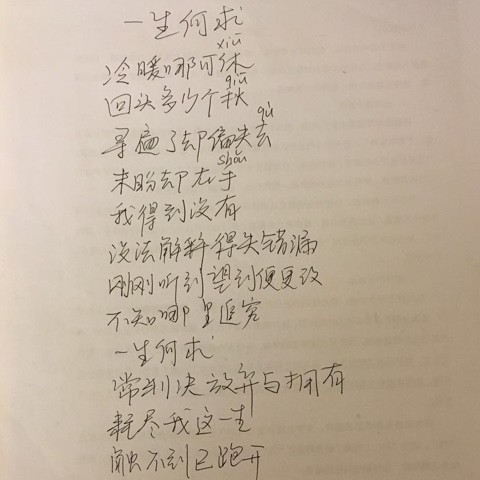 一生何求
xiū
冷暖哪可休
qiū
回头多少个秋
qù
寻遍了却偏失去
shǒu
未盼却在手
我得到没有
没法解释得失错漏
刚刚听到望到便更改
不知哪里追究
一生何求
常判决放弃与拥有
耗尽我这一生
触不到已跑开